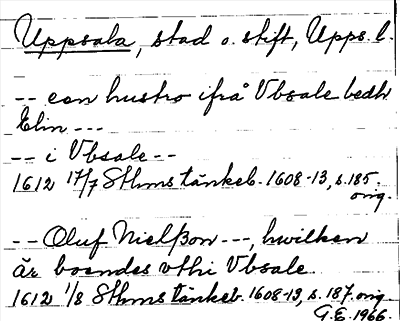 Uppsala, stad o. stift, Upps. l.
-- een hustro ifrå Vbsale bedh
Elin ---
-- i Vbsale --
1612 17/7 Sthms tänkeb. 1608-13, s. 185.
orig.
-- Oluf Nielßon ---, hwilken
är boendes vthi Vbsale
1612 1/8 Sthms tänkeb. 1608-13, s. 187. orig
G.E. 1966.